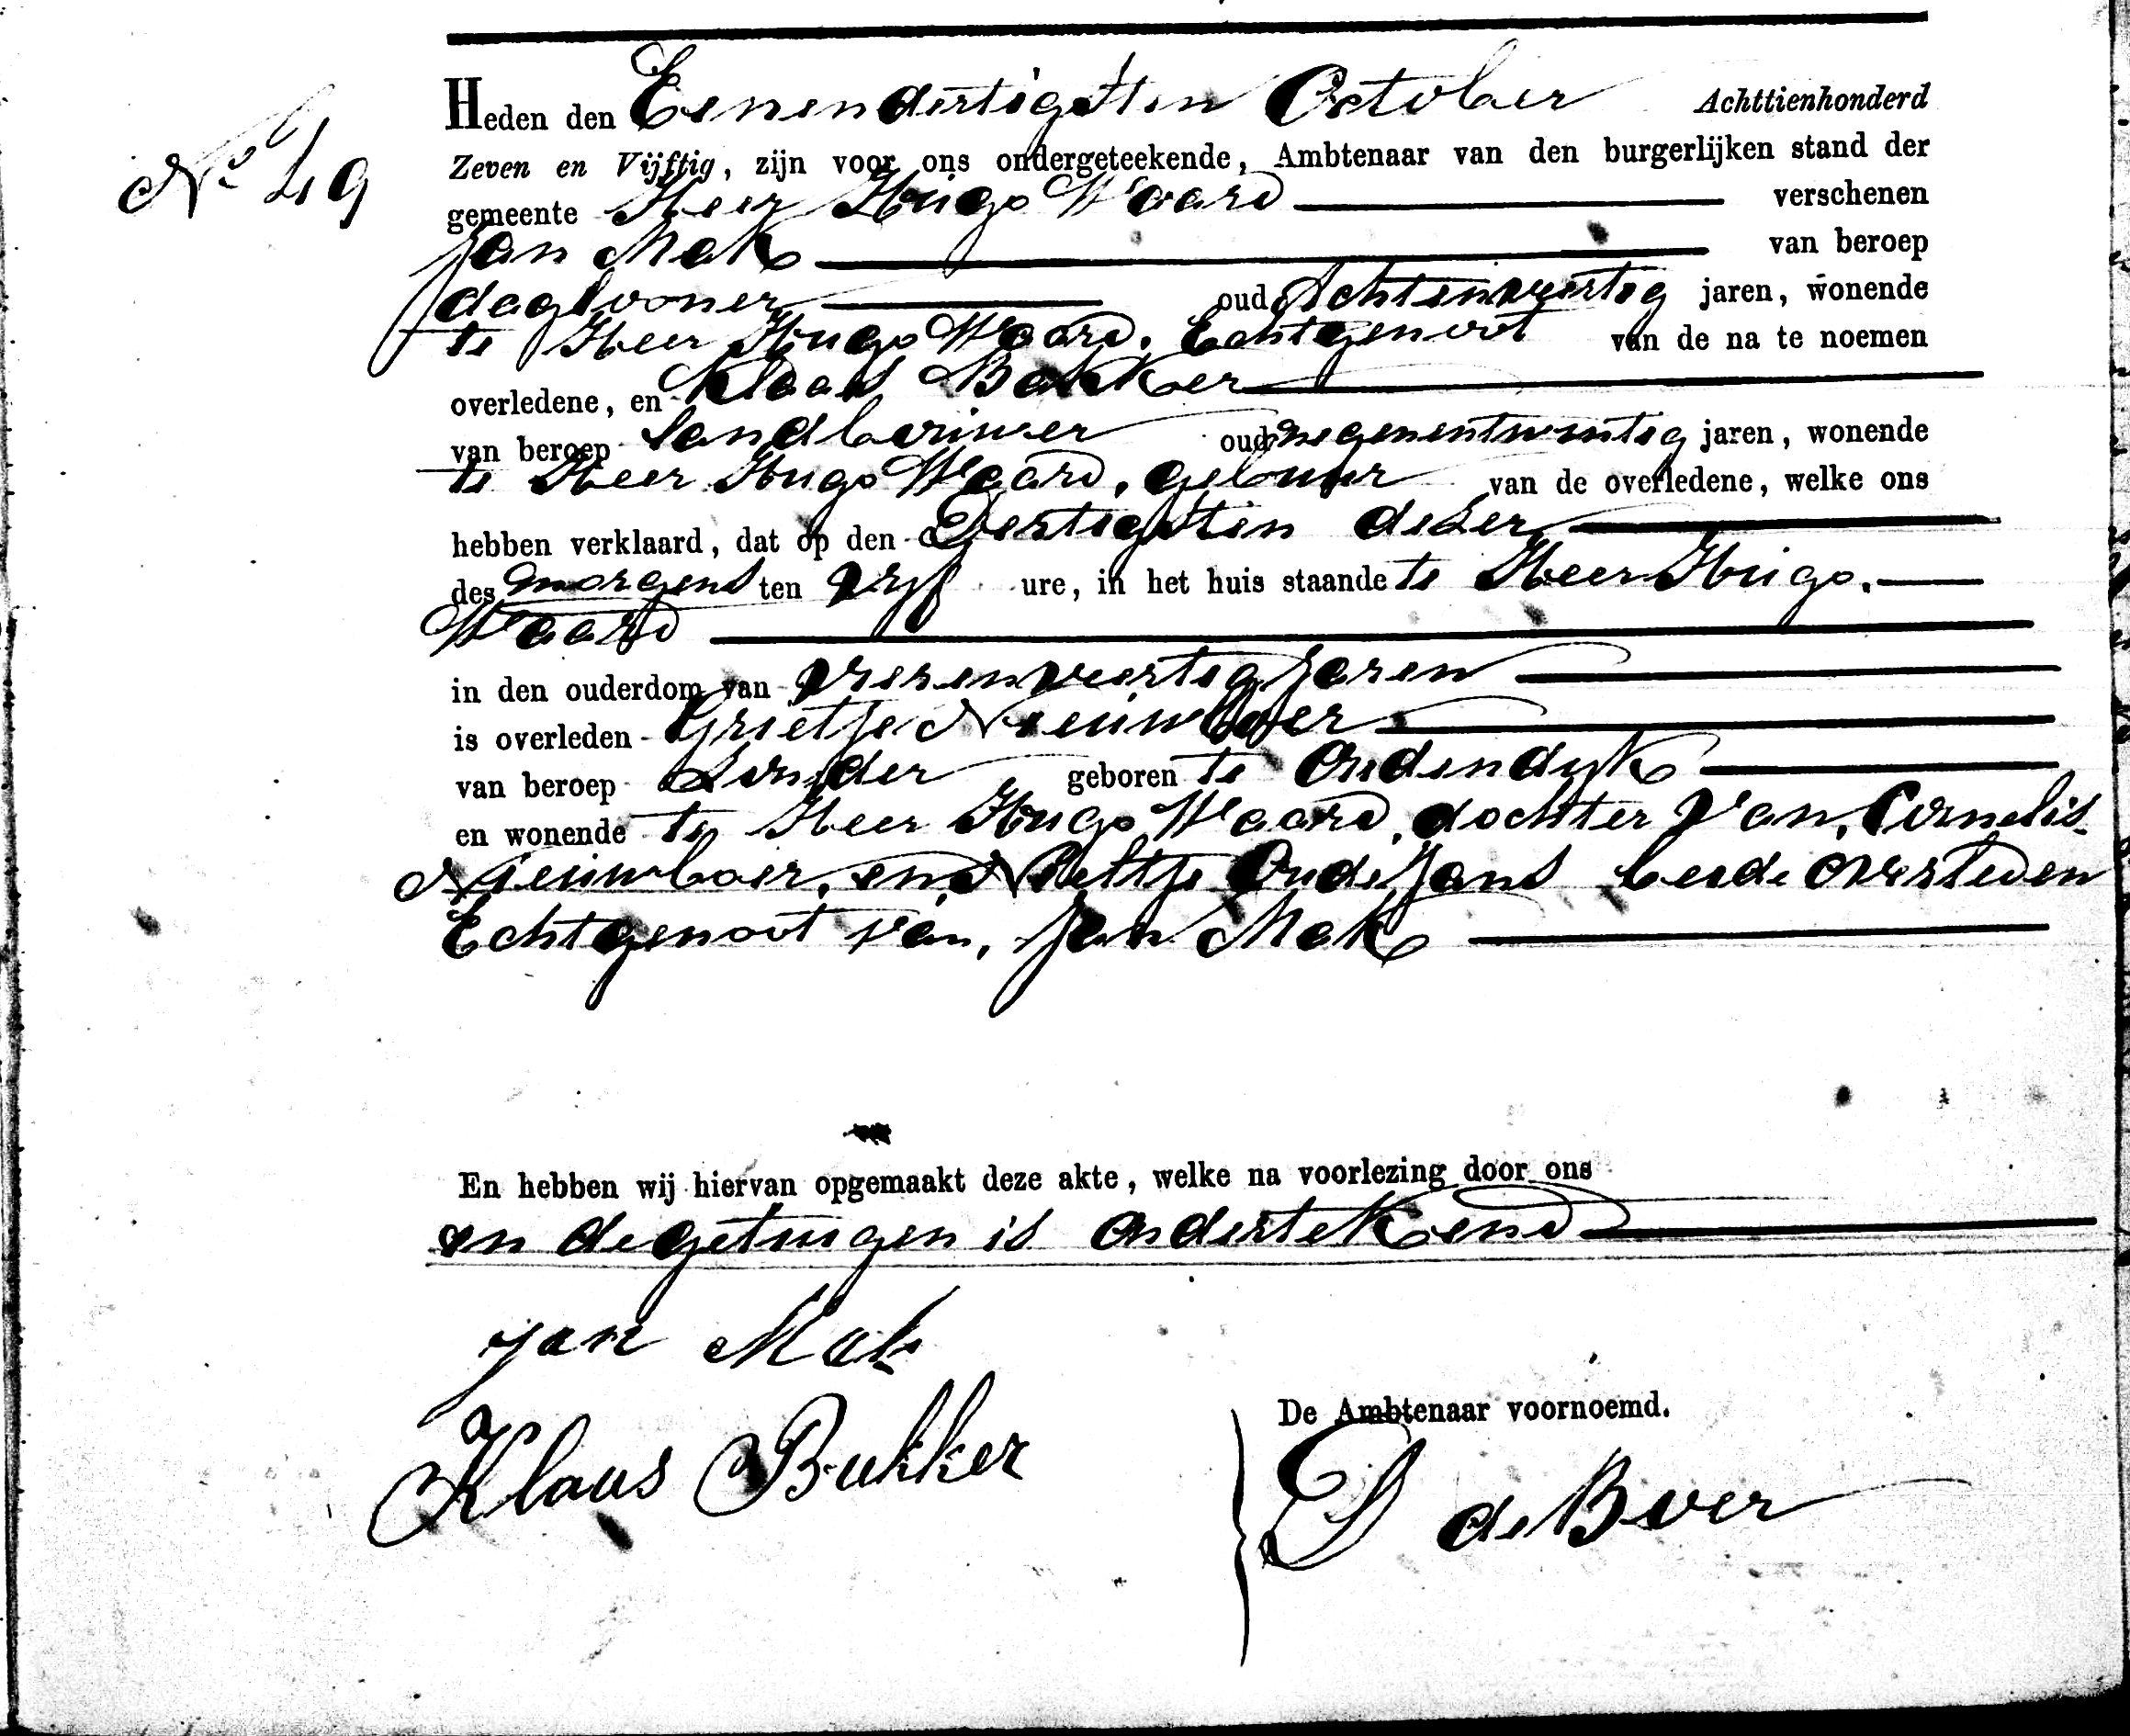 Heden den Eenendertigsten October Achttienhonderd
No 49
Zeven en Vijftig, zijn voor ons ondergeteekende, Ambtenaar van den burgerlijken stand der
gemeente Heer Hugo Waard verschenen
Jan Mak van beroep
daglooner oud Achtenveertig jaren, wonende
te Heer Hugo Waard, Echtgenoot van de na te noemen
overledene, en Klaas Bakker
van beroep landbouwer oud negenentwintig jaren, wonende
te Heer Hugo Waard, gebuur van de overledene, welke ons
hebben verklaard, dat op den Dertigsten dezer
des morgens ten vyf ure, in het huis staande te Heer Hugo
Waard
in den ouderdom van vierenveertig Jaren
is overleden Grietje Nieuwboer
van beroep Zonder geboren te Oudendyk
en wonende te Heer Hugo Waard, dochter van, Cornelis
Nieuwboer, en Neeltje OudeJans beide overleden
Echtgenoot van, Jan Mak
En hebben wij hiervan opgemaakt deze akte, welke na voorlezing door ons
en de getuigen is ondertekend
Jan Mak
Klaas Bakker
De Ambtenaar voornoemd.
de Boer